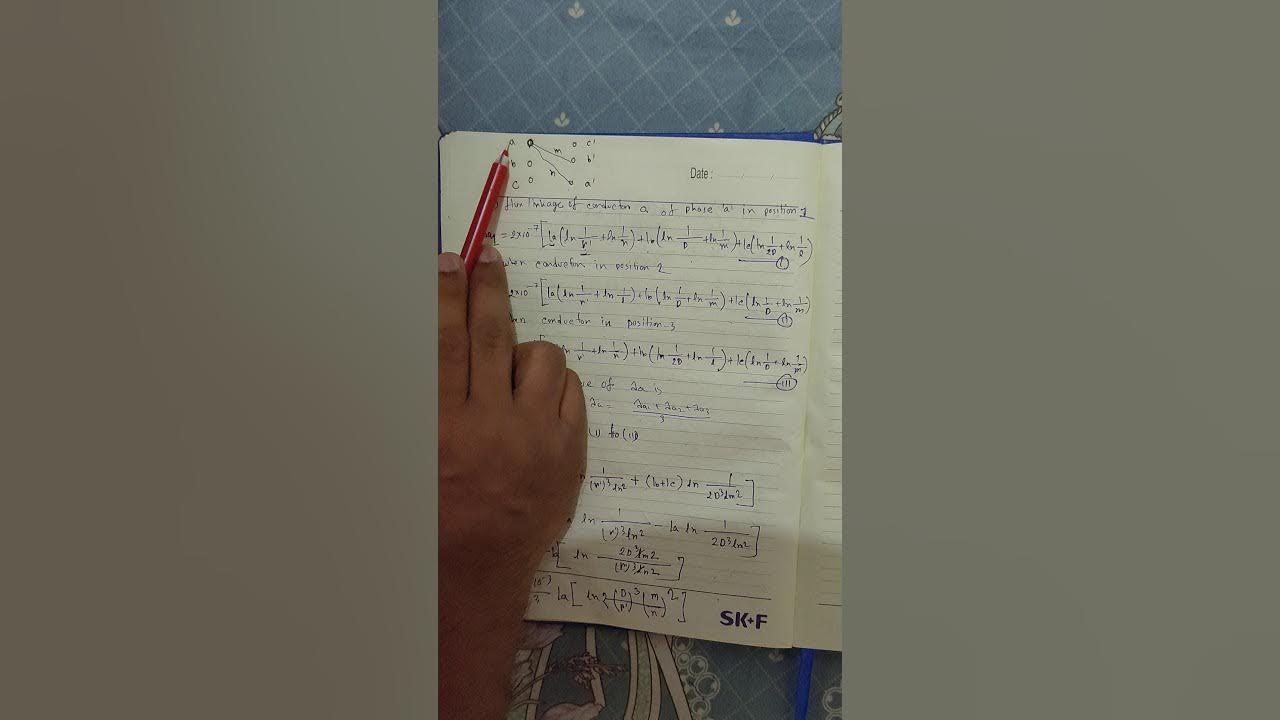 a c'
m
b b'
n
c a'
Date :
flux linkage of conductor a of phase 'a' in position 1
= 2×10⁻⁷ [Ia(ln 1/r' + ln 1/n) + Ib(ln 1/D + ln 1/m) + Ic(ln 1/2D + ln 1/l) (I)
when conductor in position 2
2×10⁻⁷ [Ia(ln 1/r' + ln 1/l) + Ib(ln 1/D + ln 1/m) + Ic(ln 1/D + ln 1/m) (II)
conductor in position-3
ln 1/r' + ln 1/n) + Ib(ln 1/2D + ln 1/l) + Ic(ln 1/D + ln 1/m) (III)
of λa is
λa = λa1 + λa2 + λa3 / 3
(I) to (III)
1/(r')³ln² + (Ib+Ic) ln 1/2D³lm2 ]
ln 1/(r')³ln² - Ia ln 1/2D³ln² ]
[ ln 2D³lm2/(r')³ln2 ]
3 Ia [ ln 2 (D/r')³ (m/n)² ]
SK+F